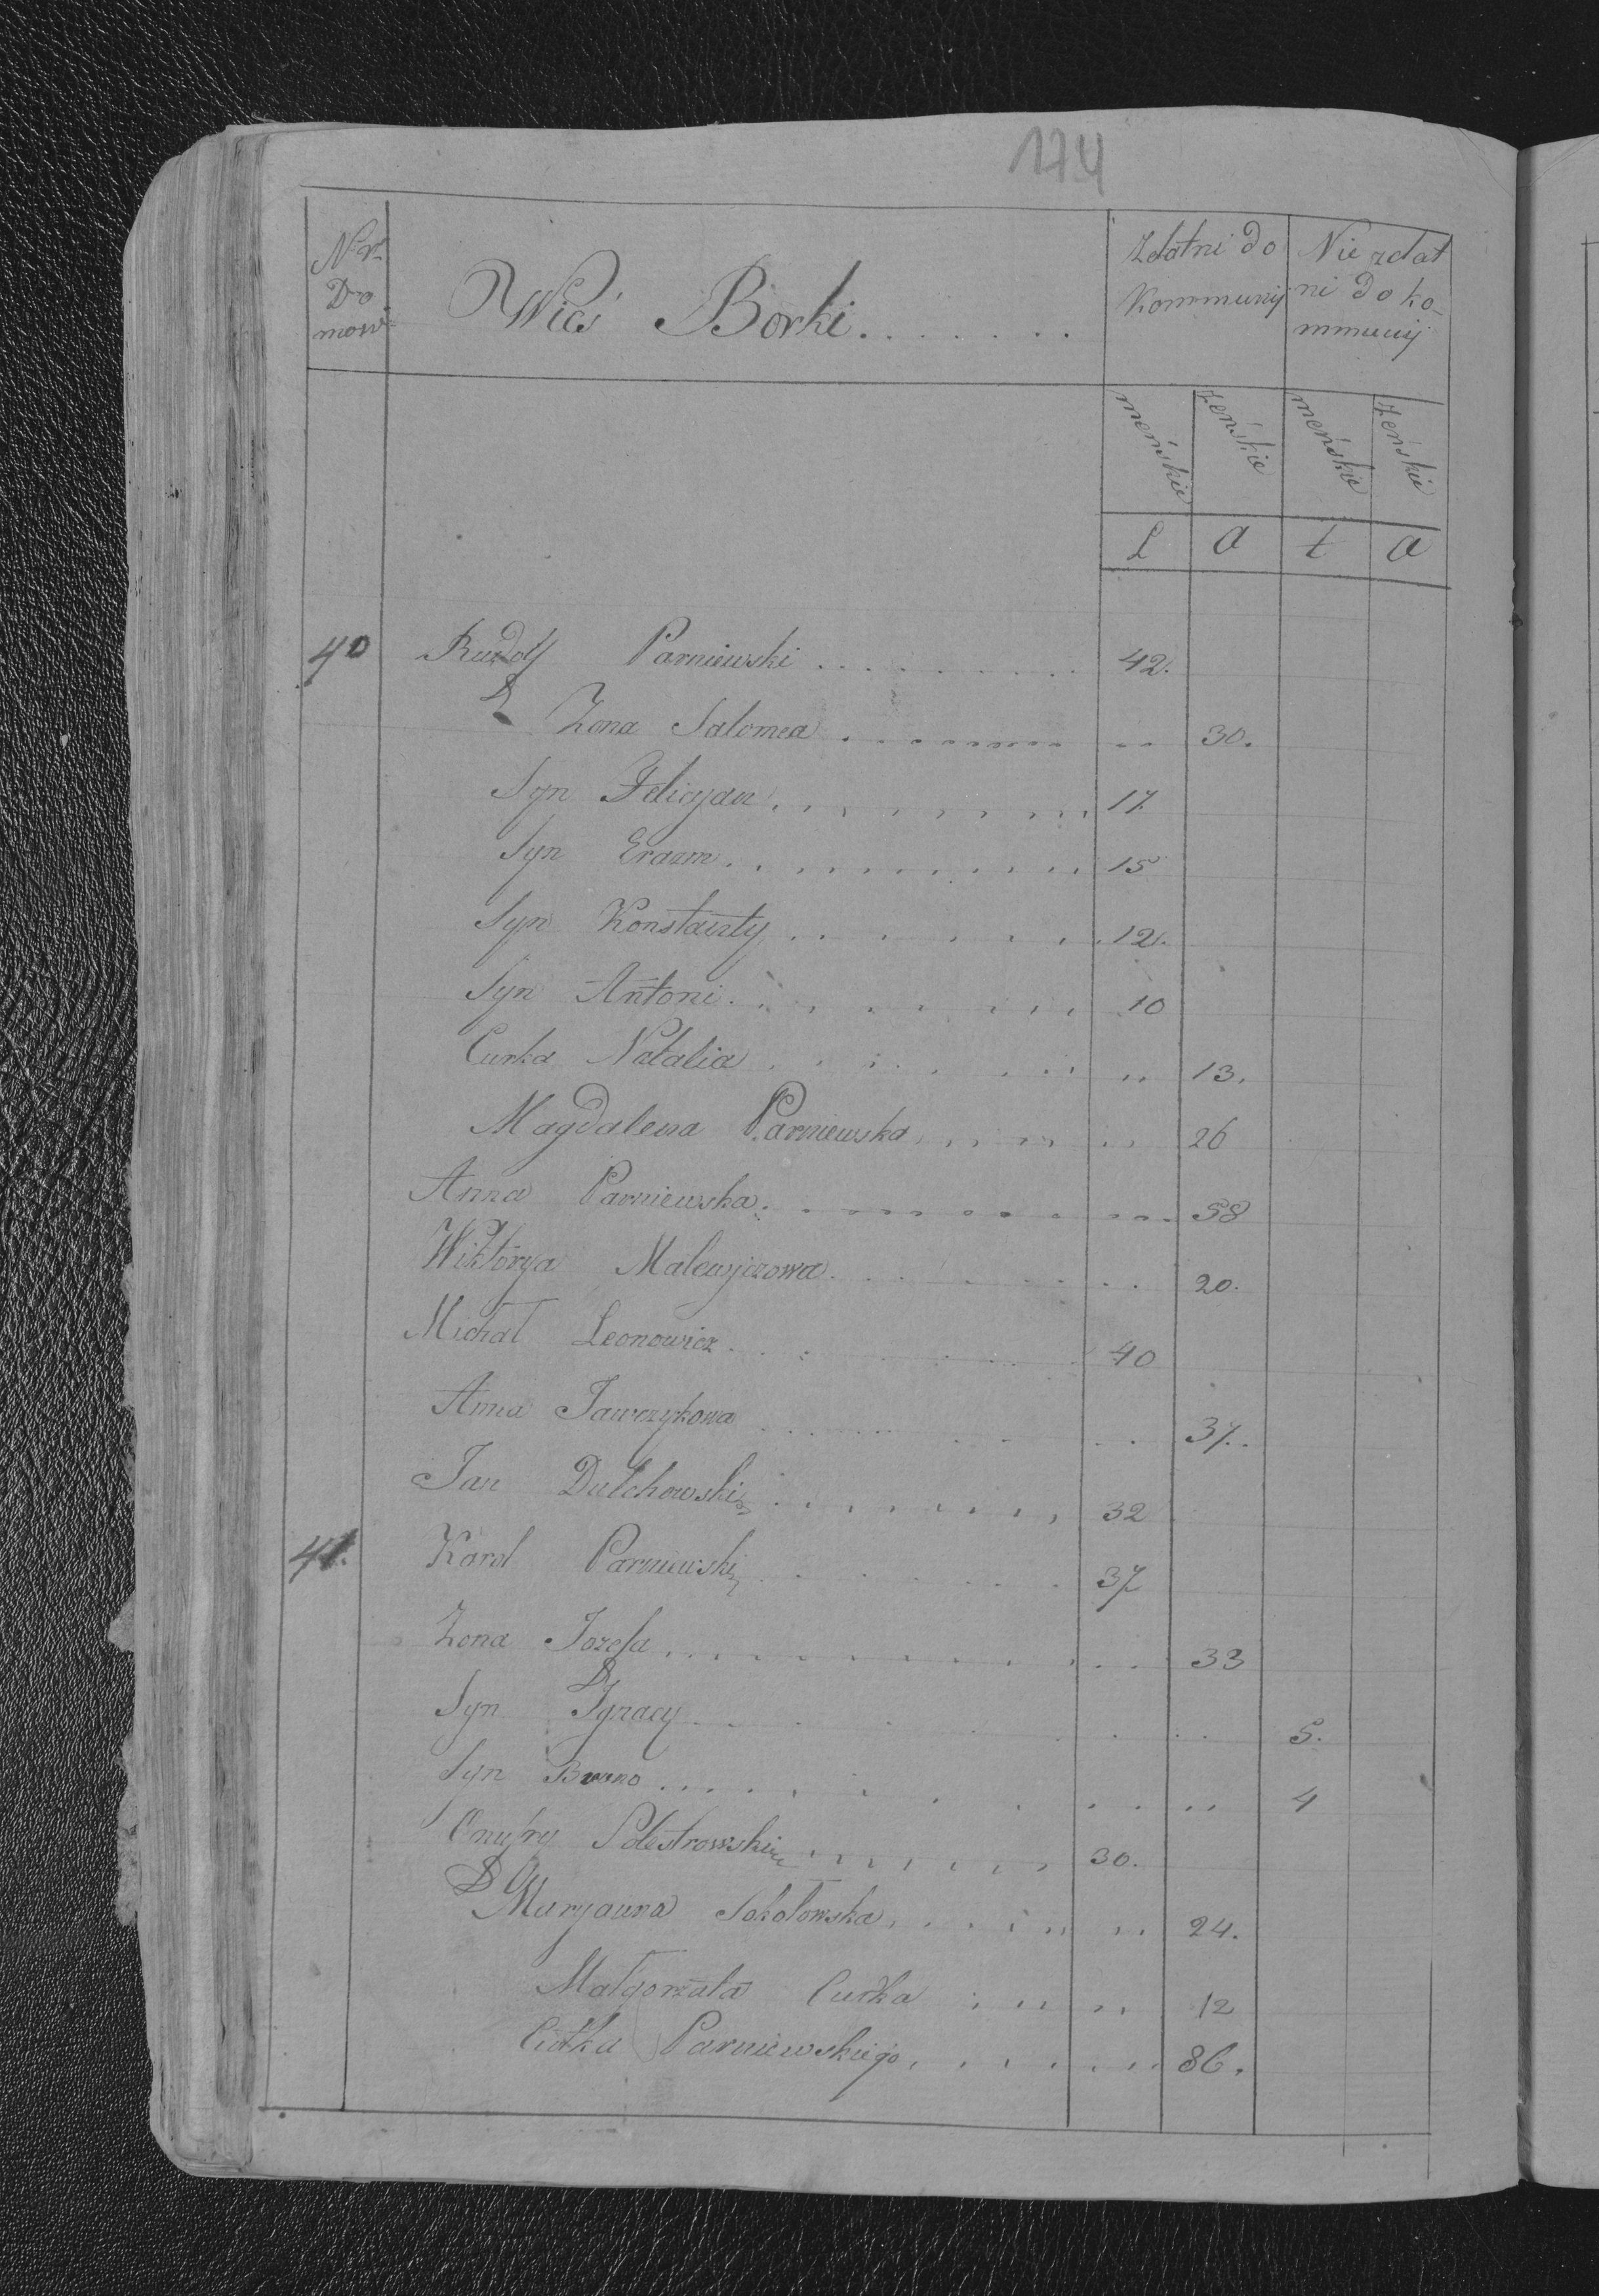 174
Nr Do mow
Wieś Borki
Zdatni do Kommunij
Nie zdat ni do ko- mmunij
męńskie żeńskie męńskie żeńskie
L a t a
40 Rudolf Parniewski 42.
Zona Salomea 30.
Syn Felicyan 17
Syn Erazm 15
Syn Konstanty 12.
Syn Antoni 10
Curka Natalia 13.
Magdalena Parniewska 26
Anna Parniewska 58
Wiktorya Malewiczowa 20.
Michał Leonowicz 40
Anna 37.
Jan Dulchowski 32
41. Karol Parniewski 37
Zona Jozefa 33
Syn Ignacy 5.
Syn Bruno 4
Onufry 30.
Maryanna Sokołowska 24.
Małgorzata Curka 12
Ciotka Parniewskiego 86.